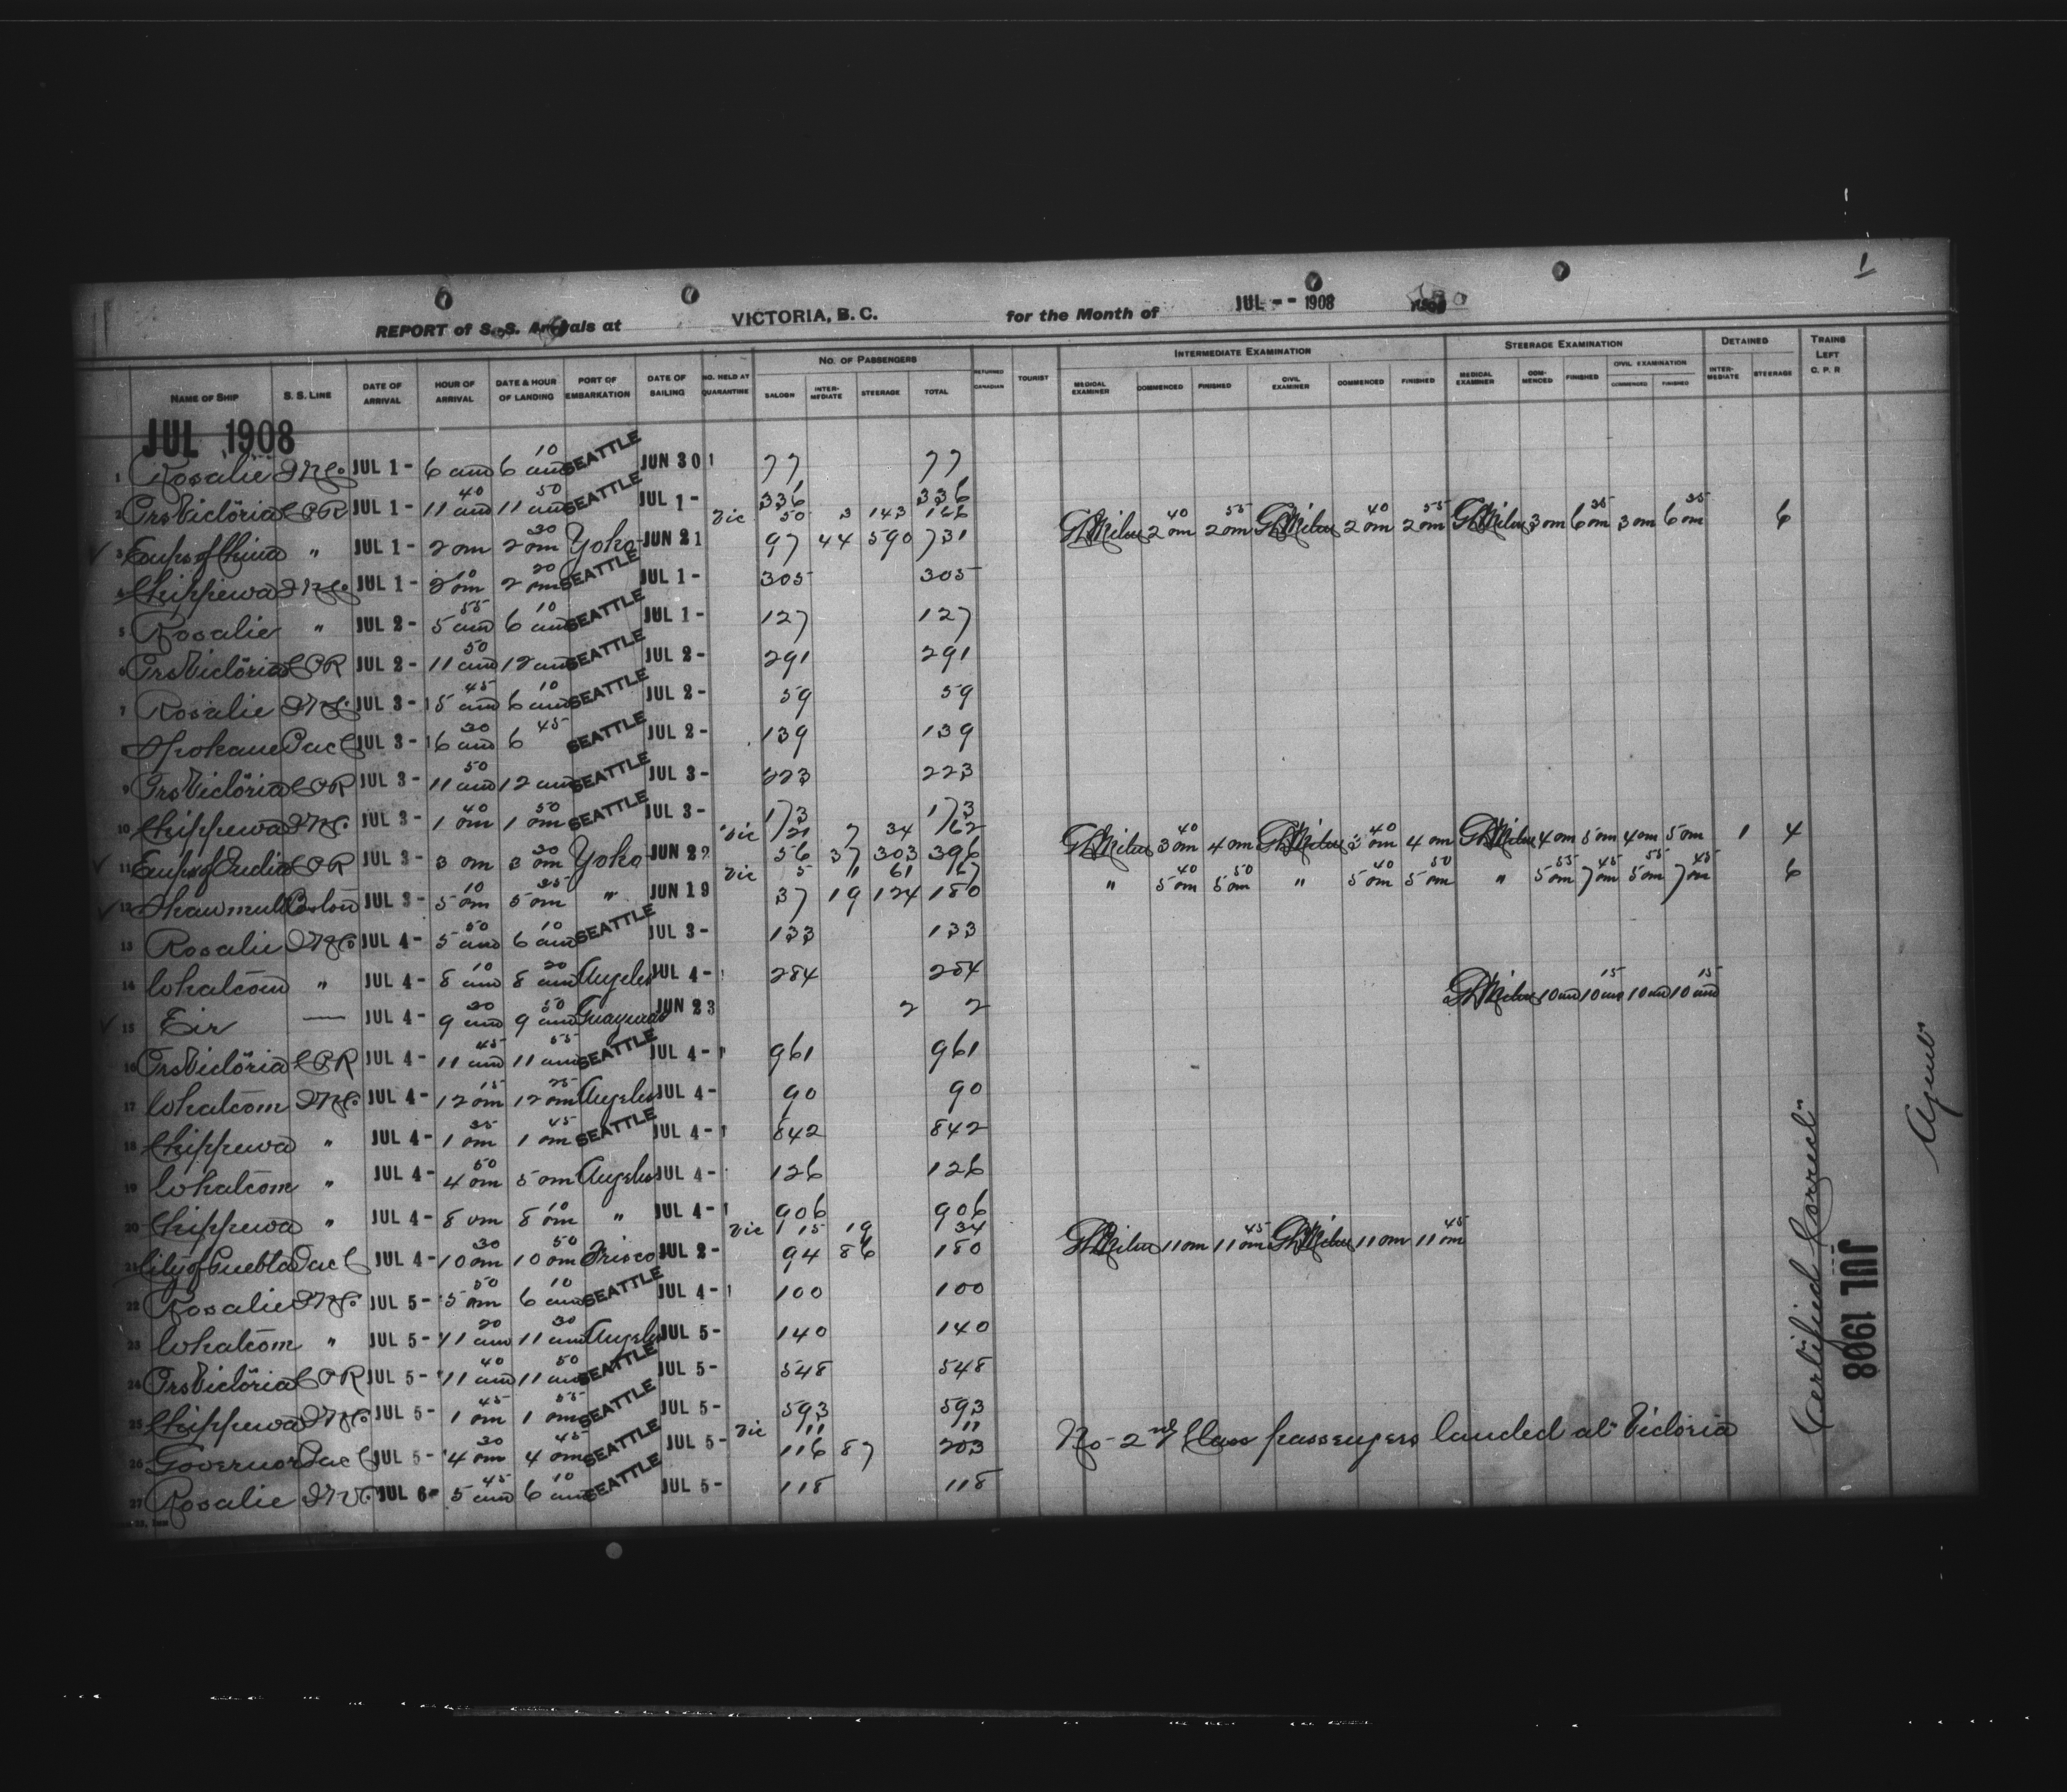 1
REPORT of S. S. Arrivals at VICTORIA, B. C. for the Month of JUL -- 1908
NAME OF SHIP S. S. LINE DATE OF ARRIVAL HOUR OF ARRIVAL DATE & HOUR OF LANDING PORT OF EMBARKATION DATE OF SAILING NO. HELD AT QUARANTINE No. OF PASSENGERS SALOON INTERMEDIATE STEERAGE TOTAL RETURNED CANADIAN TOURIST INTERMEDIATE EXAMINATION MEDICAL EXAMINER COMMENCED FINISHED CIVIL EXAMINER COMMENCED FINISHED STEERAGE EXAMINATION MEDICAL EXAMINER COMMENCED FINISHED CIVIL EXAMINATION COMMENCED FINISHED DETAINED INTERMEDIATE STEERAGE TRAINS LEFT C. P. R
JUL 1908
1 Rosalie JUL 1- 6 am 6 10 am SEATTLE JUN 30 77 77
2 Prs Victoria CPR JUL 1- 11 40 am 11 50 am SEATTLE JUL 1- 336 336
Vic 50 3 143
3 Emps of China " JUL 1- 2 pm 2 30 pm Yoko JUN 21 97 44 590 731 G L Milne 2 40 pm 2 55 pm G L Milne 2 40 pm 2 55 pm G L Milne 3 pm 6 35 pm 3 pm 6 35 pm 6
4 Chippewa JUL 1- 2 10 pm 2 20 pm SEATTLE JUL 1- 305 305
5 Rosalie " JUL 2- 5 55 am 6 10 am SEATTLE JUL 1- 127 127
6 Prs Victoria CPR JUL 2- 11 50 am 12 am SEATTLE JUL 2- 291 291
7 Rosalie JUL 3- 5 45 am 6 10 am SEATTLE JUL 2- 59 59
8 Spokane Pac C JUL 3- 6 30 am 6 45 SEATTLE JUL 2- 139 139
9 Prs Victoria CPR JUL 3- 11 50 am 12 am SEATTLE JUL 3- 223 223
10 Chippewa JUL 3- 1 40 pm 1 50 pm SEATTLE JUL 3- 173 173
Vic 21 7 34 62
11 Emps of India CPR JUL 3- 3 pm 3 30 pm Yoko JUN 22 56 37 303 396 G L Milne 3 40 pm 4 pm G L Milne 3 40 pm 4 pm G L Milne 4 pm 5 pm 4 pm 5 pm 1 4
Vic 5 1 61 67
12 Shawmut Boston JUL 3- 5 10 pm 5 25 pm " JUN 19 37 19 124 180 " 5 40 pm 5 50 pm " 5 40 pm 5 50 pm " 5 55 pm 7 45 pm 5 55 pm 7 45 pm 6
13 Rosalie JUL 4- 5 50 am 6 10 am SEATTLE JUL 3- 133 133
14 Whatcom " JUL 4- 8 10 am 8 20 am Angeles JUL 4- 284 284
15 Eir — JUL 4- 9 20 am 9 50 am Guaymas JUN 23 2 2 G L Milne 10 am 10 15 am 10 am 10 15 am
16 Prs Victoria CPR JUL 4- 11 45 am 11 55 am SEATTLE JUL 4- 961 961
17 Whatcom JUL 4- 12 15 pm 12 25 pm Angeles JUL 4- 90 90
18 Chippewa " JUL 4- 1 35 pm 1 45 pm SEATTLE JUL 4- 842 842
19 Whatcom " JUL 4- 4 50 pm 5 pm Angeles JUL 4- 126 126
20 Chippewa " JUL 4- 8 pm 8 10 pm " JUL 4- 906 906
Vic 15 19 34
21 City of Puebla Pac C JUL 4- 10 30 pm 10 50 pm Frisco JUL 2- 94 86 180 G L Milne 11 pm 11 45 pm G L Milne 11 pm 11 45 pm
22 Rosalie JUL 5- 5 50 am 6 10 am SEATTLE JUL 4- 100 100
23 Whatcom " JUL 5- 11 20 am 11 30 am Angeles JUL 5- 140 140
24 Prs Victoria CPR JUL 5- 11 40 am 11 50 am SEATTLE JUL 5- 548 548
25 Chippewa JUL 5- 1 45 pm 1 55 pm SEATTLE JUL 5- 593 593
Vic 11 11
26 Governor Pac C JUL 5- 4 30 pm 4 45 pm SEATTLE JUL 5- 116 87 203 No 2nd Class passengers landed at Victoria
27 Rosalie JUL 6- 5 45 am 6 10 am SEATTLE JUL 5- 118 118
"Certified Correct"
JUL 1908
Agent